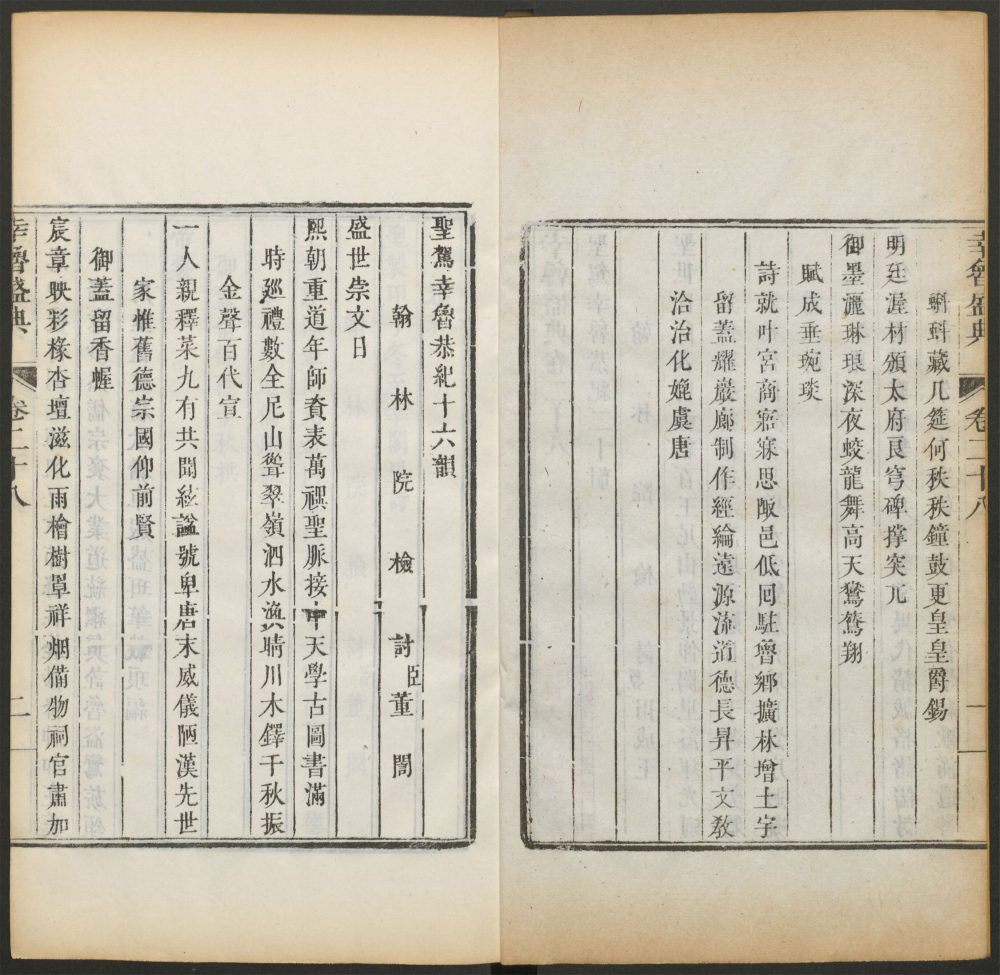 幸魯盛典 卷二十八 一
蝌蚪藏几筵何秩秩鐘鼓更皇皇爵錫
明廷渥材頒太府良穹碑撐突兀
御墨灑琳琅深夜蛟龍舞高天鸞鶩翔
賦成垂琬琰
詩就叶宮商寤寐思陬邑低回駐魯鄉擴林增土字
留蓋耀巖廊制作經綸遠源流道德長昇平文敎
洽治化媲虞唐
聖駕幸魯恭紀十六韻
翰林院檢討臣董誾
盛世崇文日
熙朝重道年師資表萬禩聖脈接中天學古圖書滿
時廵禮數全尼山聳翠嶺泗水漁晴川木鐸千秋振
金聲百代宣
一人親釋菜九有共聞絃謚號卑唐末威儀陋漢先世
家惟舊德宗國仰前賢
御蓋留香幄
宸章映彩椽杏壇滋化雨檜樹羃祥烟備物祠官肅加
幸魯盛典 卷二十八 二